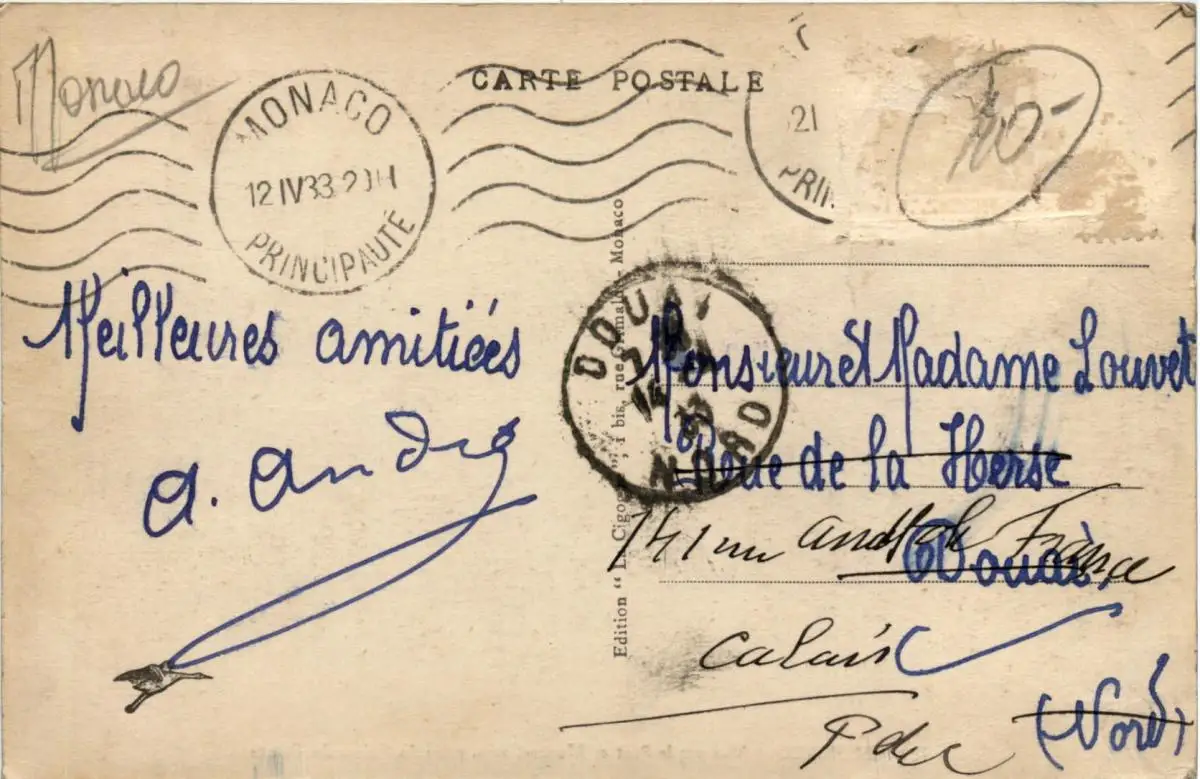 Monaco
CARTE POSTALE
MONACO
12 IV 33
PRINCIPAUTÉ
21
PRIN
40-
Meilleures amitiées
a. André
Edition " La Cigogne ", 1 bis, rue Grimaldi - Monaco
DOUAI
NORD
Monsieur et Madame Louvet
Rue de la Herse
Douai
141 rue anatole France
Calais
P de C
(Nord)